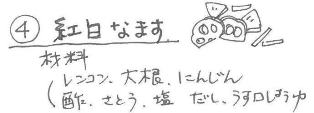 ④ 紅白なます
材料
レンコン、大根、にんじん
(酢、さとう、塩 だし、うす口しょうゆ